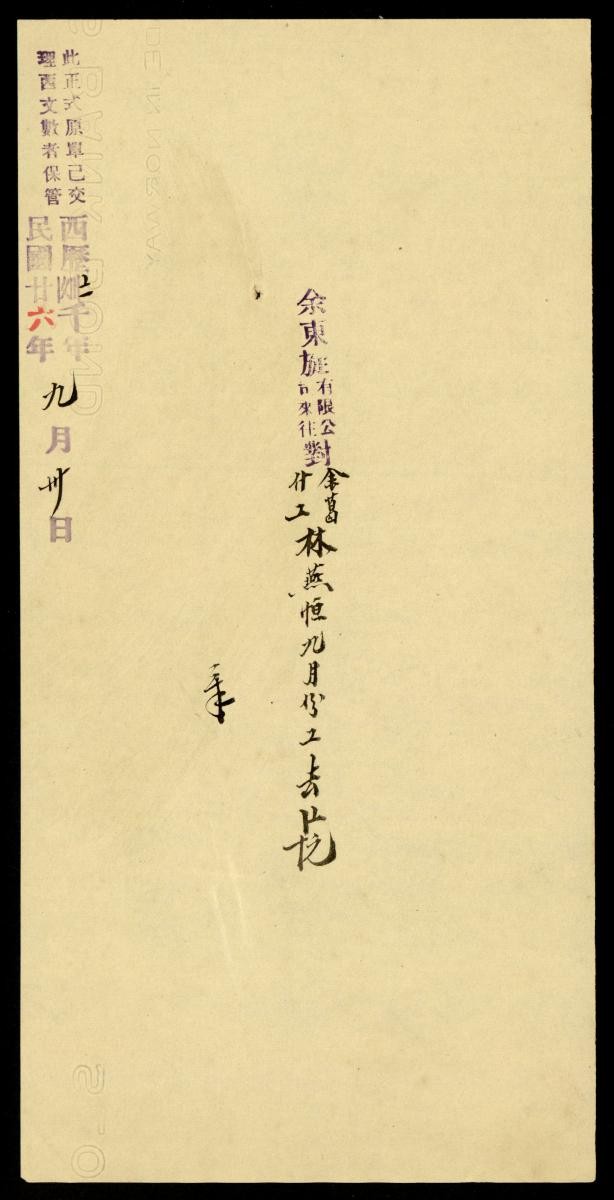 余東旋有限公司來往對
金葛什工林燕恒九月份工去
此正式原單已交
理西文數者保管
西歷年
民國廿六年九月卅日
MADE IN NORWAY
BANK BOND